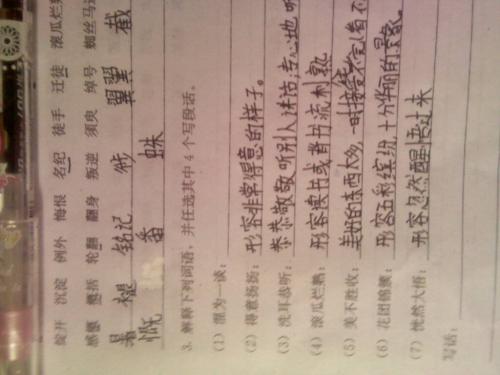 绽开 沉淀 例外 悔恨 名纪 徒手 迁徙 滚瓜烂
感慨 概括 轮翻 翻身 叛逆 须臾 绰号 蜘丝马
铭记 翼翼 截
慨 番 蛛
3. 解释下列词语,并任选其中 4 个写段话。
(1) 混为一谈:
(2) 得意扬扬: 形容非常得意的样子。
(3) 洗耳恭听: 恭恭敬敬听别人讲话;专心地听
(4) 滚瓜烂熟: 形容读书或背书流利熟
(5) 美不胜收: 美好的东西太多,一时接受不完看不
(6) 花团锦簇: 形容五彩缤纷,十分华丽的景象。
(7) 恍然大悟: 形容忽然醒悟过来
写话: